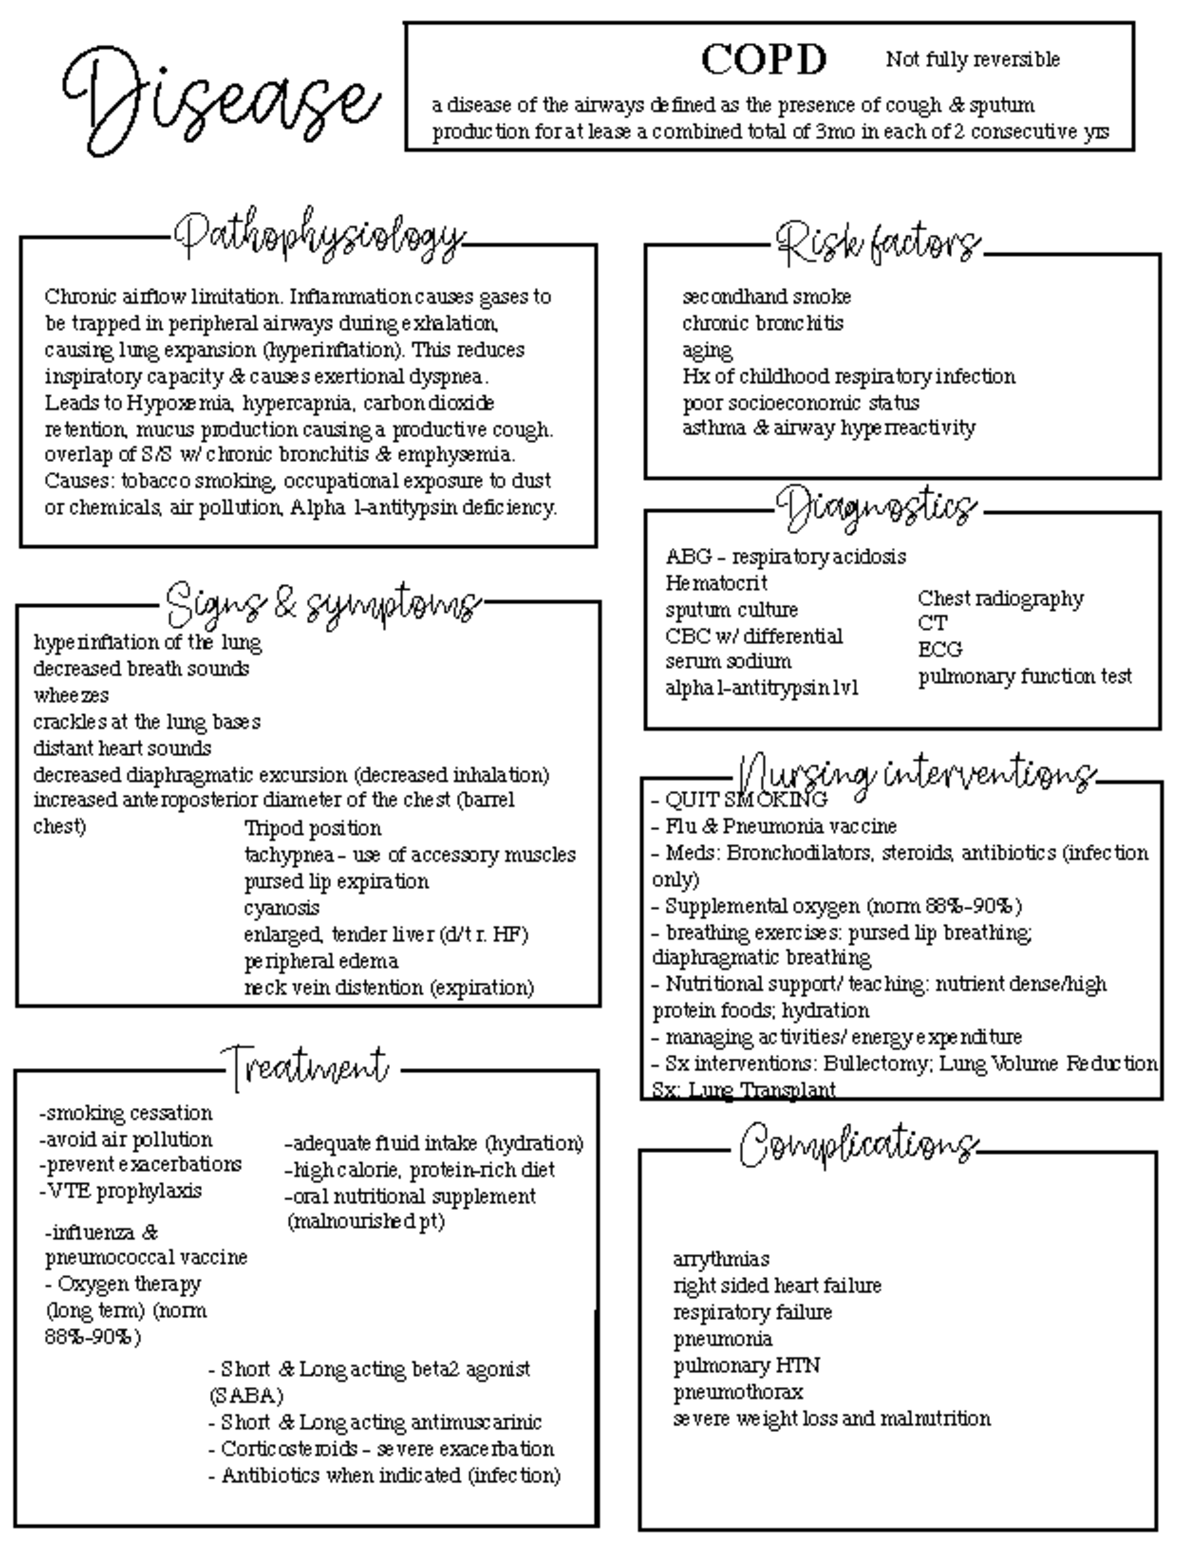 Disease
COPD
Not fully reversible
a disease of the airways defined as the presence of cough & sputum
production for at lease a combined total of 3mo in each of 2 consecutive yrs
Pathophysiology
Chronic airflow limitation. Inflammation causes gases to
be trapped in peripheral airways during exhalation,
causing lung expansion (hyperinflation). This reduces
inspiratory capacity & causes exertional dyspnea.
Leads to Hypoxemia, hypercapnia, carbon dioxide
retention, mucus production causing a productive cough.
overlap of S/S w/ chronic bronchitis & emphysemia.
Causes: tobacco smoking, occupational exposure to dust
or chemicals, air pollution, Alpha 1-antitypsin deficiency.
Risk factors
secondhand smoke
chronic bronchitis
aging
Hx of childhood respiratory infection
poor socioeconomic status
asthma & airway hyperreactivity
Diagnostics
ABG - respiratory acidosis
Hematocrit
sputum culture
CBC w/ differential
serum sodium
alpha 1-antitrypsin lvl
Chest radiography
CT
ECG
pulmonary function test
Signs & symptoms
hyperinflation of the lung
decreased breath sounds
wheezes
crackles at the lung bases
distant heart sounds
decreased diaphragmatic excursion (decreased inhalation)
increased anteroposterior diameter of the chest (barrel
chest)
Tripod position
tachypnea - use of accessory muscles
pursed lip expiration
cyanosis
enlarged, tender liver (d/t r. HF)
peripheral edema
neck vein distention (expiration)
Nursing interventions
- QUIT SMOKING
- Flu & Pneumonia vaccine
- Meds: Bronchodilators, steroids, antibiotics (infection
only)
- Supplemental oxygen (norm 88%-90%)
- breathing exercises: pursed lip breathing;
diaphragmatic breathing
- Nutritional support/ teaching: nutrient dense/high
protein foods; hydration
- managing activities/ energy expenditure
- Sx interventions: Bullectomy; Lung Volume Reduction
Sx: Lung Transplant
Treatment
-smoking cessation
-avoid air pollution
-prevent exacerbations
-VTE prophylaxis
-influenza &
pneumococcal vaccine
- Oxygen therapy
(long term) (norm
88%-90%)
-adequate fluid intake (hydration)
-high calorie, protein-rich diet
-oral nutritional supplement
(malnourished pt)
- Short & Long acting beta2 agonist
(SABA)
- Short & Long acting antimuscarinic
- Corticosteroids - severe exacerbation
- Antibiotics when indicated (infection)
Complications
arrythmias
right sided heart failure
respiratory failure
pneumonia
pulmonary HTN
pneumothorax
severe weight loss and malnutrition